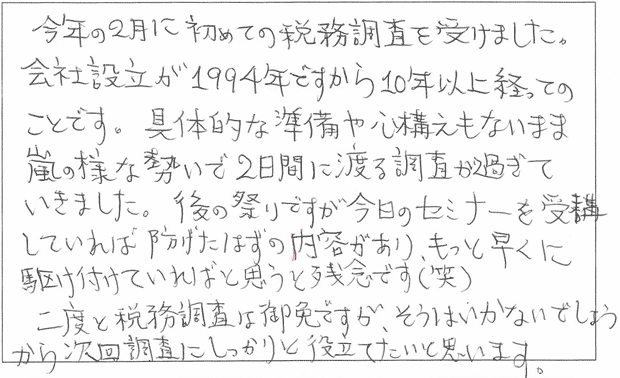 今年の2月に初めての税務調査を受けました。
会社設立が1994年ですから10年以上経っての
ことです。具体的な準備や心構えもないまま
嵐の様な勢いで2日間に渡る調査が過ぎて
いきました。後の祭りですが今日のセミナーを受講
していれば防げたはずの内容があり、もっと早くに
駆け付けていればと思うと残念です(笑)
二度と税務調査は御免ですが、そうはいかないでしょう
から次回調査にしっかりと役立てたいと思います。